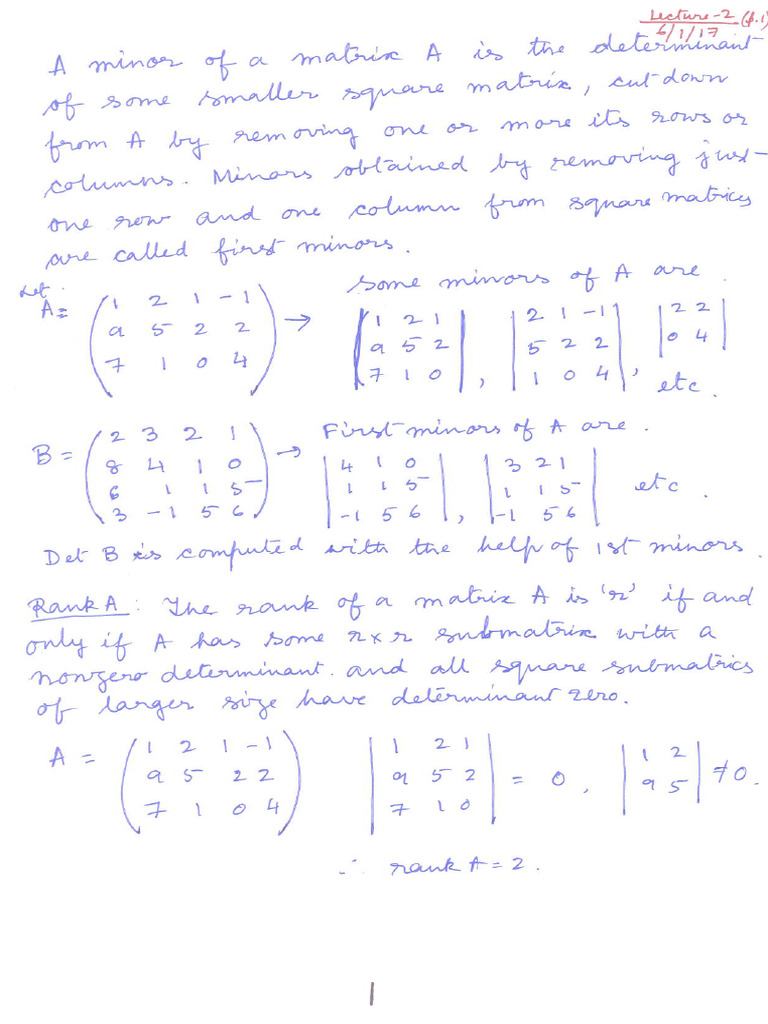 Lecture-2 (p.1)
6/1/17
A minor of a matrix A is the determinant
of some smaller square matrix, cut down
from A by removing one or more its rows or
columns. Minors obtained by removing just
one row and one column from square matrices
are called first minors.
Let
A = ( 1 2 1 -1 ; 9 5 2 2 ; 7 1 0 4 ) → some minors of A are
| 1 2 1 ; 9 5 2 ; 7 1 0 | , | 2 1 -1 ; 5 2 2 ; 1 0 4 | , | 2 2 ; 0 4 | etc.
B = ( 2 3 2 1 ; 8 4 1 0 ; 6 1 1 5 ; 3 -1 5 6 ) → First minors of A are.
| 4 1 0 ; 1 1 5 ; -1 5 6 | , | 3 2 1 ; 1 1 5 ; -1 5 6 | etc.
Det B is computed with the help of 1st minors.
Rank A : The rank of a matrix A is 'r' if and
only if A has some r x r submatrix with a
nonzero determinant. and all square submatrics
of larger size have determinant zero.
A = ( 1 2 1 -1 ; 9 5 2 2 ; 7 1 0 4 ) | 1 2 1 ; 9 5 2 ; 7 1 0 | = 0 , | 1 2 ; 9 5 | ≠ 0.
∴ rank A = 2.
1